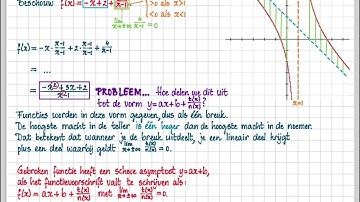 Beschouw f(x) = -x+2 + 4/(x-1) <0 als x>1
>0 als x<1
lim x→±∞ 4/(x-1) = 0
x=1
f(x) = -x · (x-1)/(x-1) + 2 · (x-1)/(x-1) + 4/(x-1)
= ...
= (-x²+3x+2)/(x-1) PROBLEEM... Hoe delen we dit uit
tot de vorm y=ax+b+ t(x)/n(x) ?
Functies worden in deze vorm gegeven, dus als één breuk.
De hoogste macht in de teller is één hoger dan de hoogste macht in de noemer.
Dat betekent dat wanneer je de breuk uitdeelt, je een lineair deel krijgt
plus een deel waarbij geldt lim x→±∞ t(x)/n(x) = 0.
Gebroken functie heeft een scheve asymptoot y=ax+b,
als het functievoorschrift valt te schrijven als:
f(x) = ax+b+ t(x)/n(x) met lim x→±∞ t(x)/n(x) = 0.